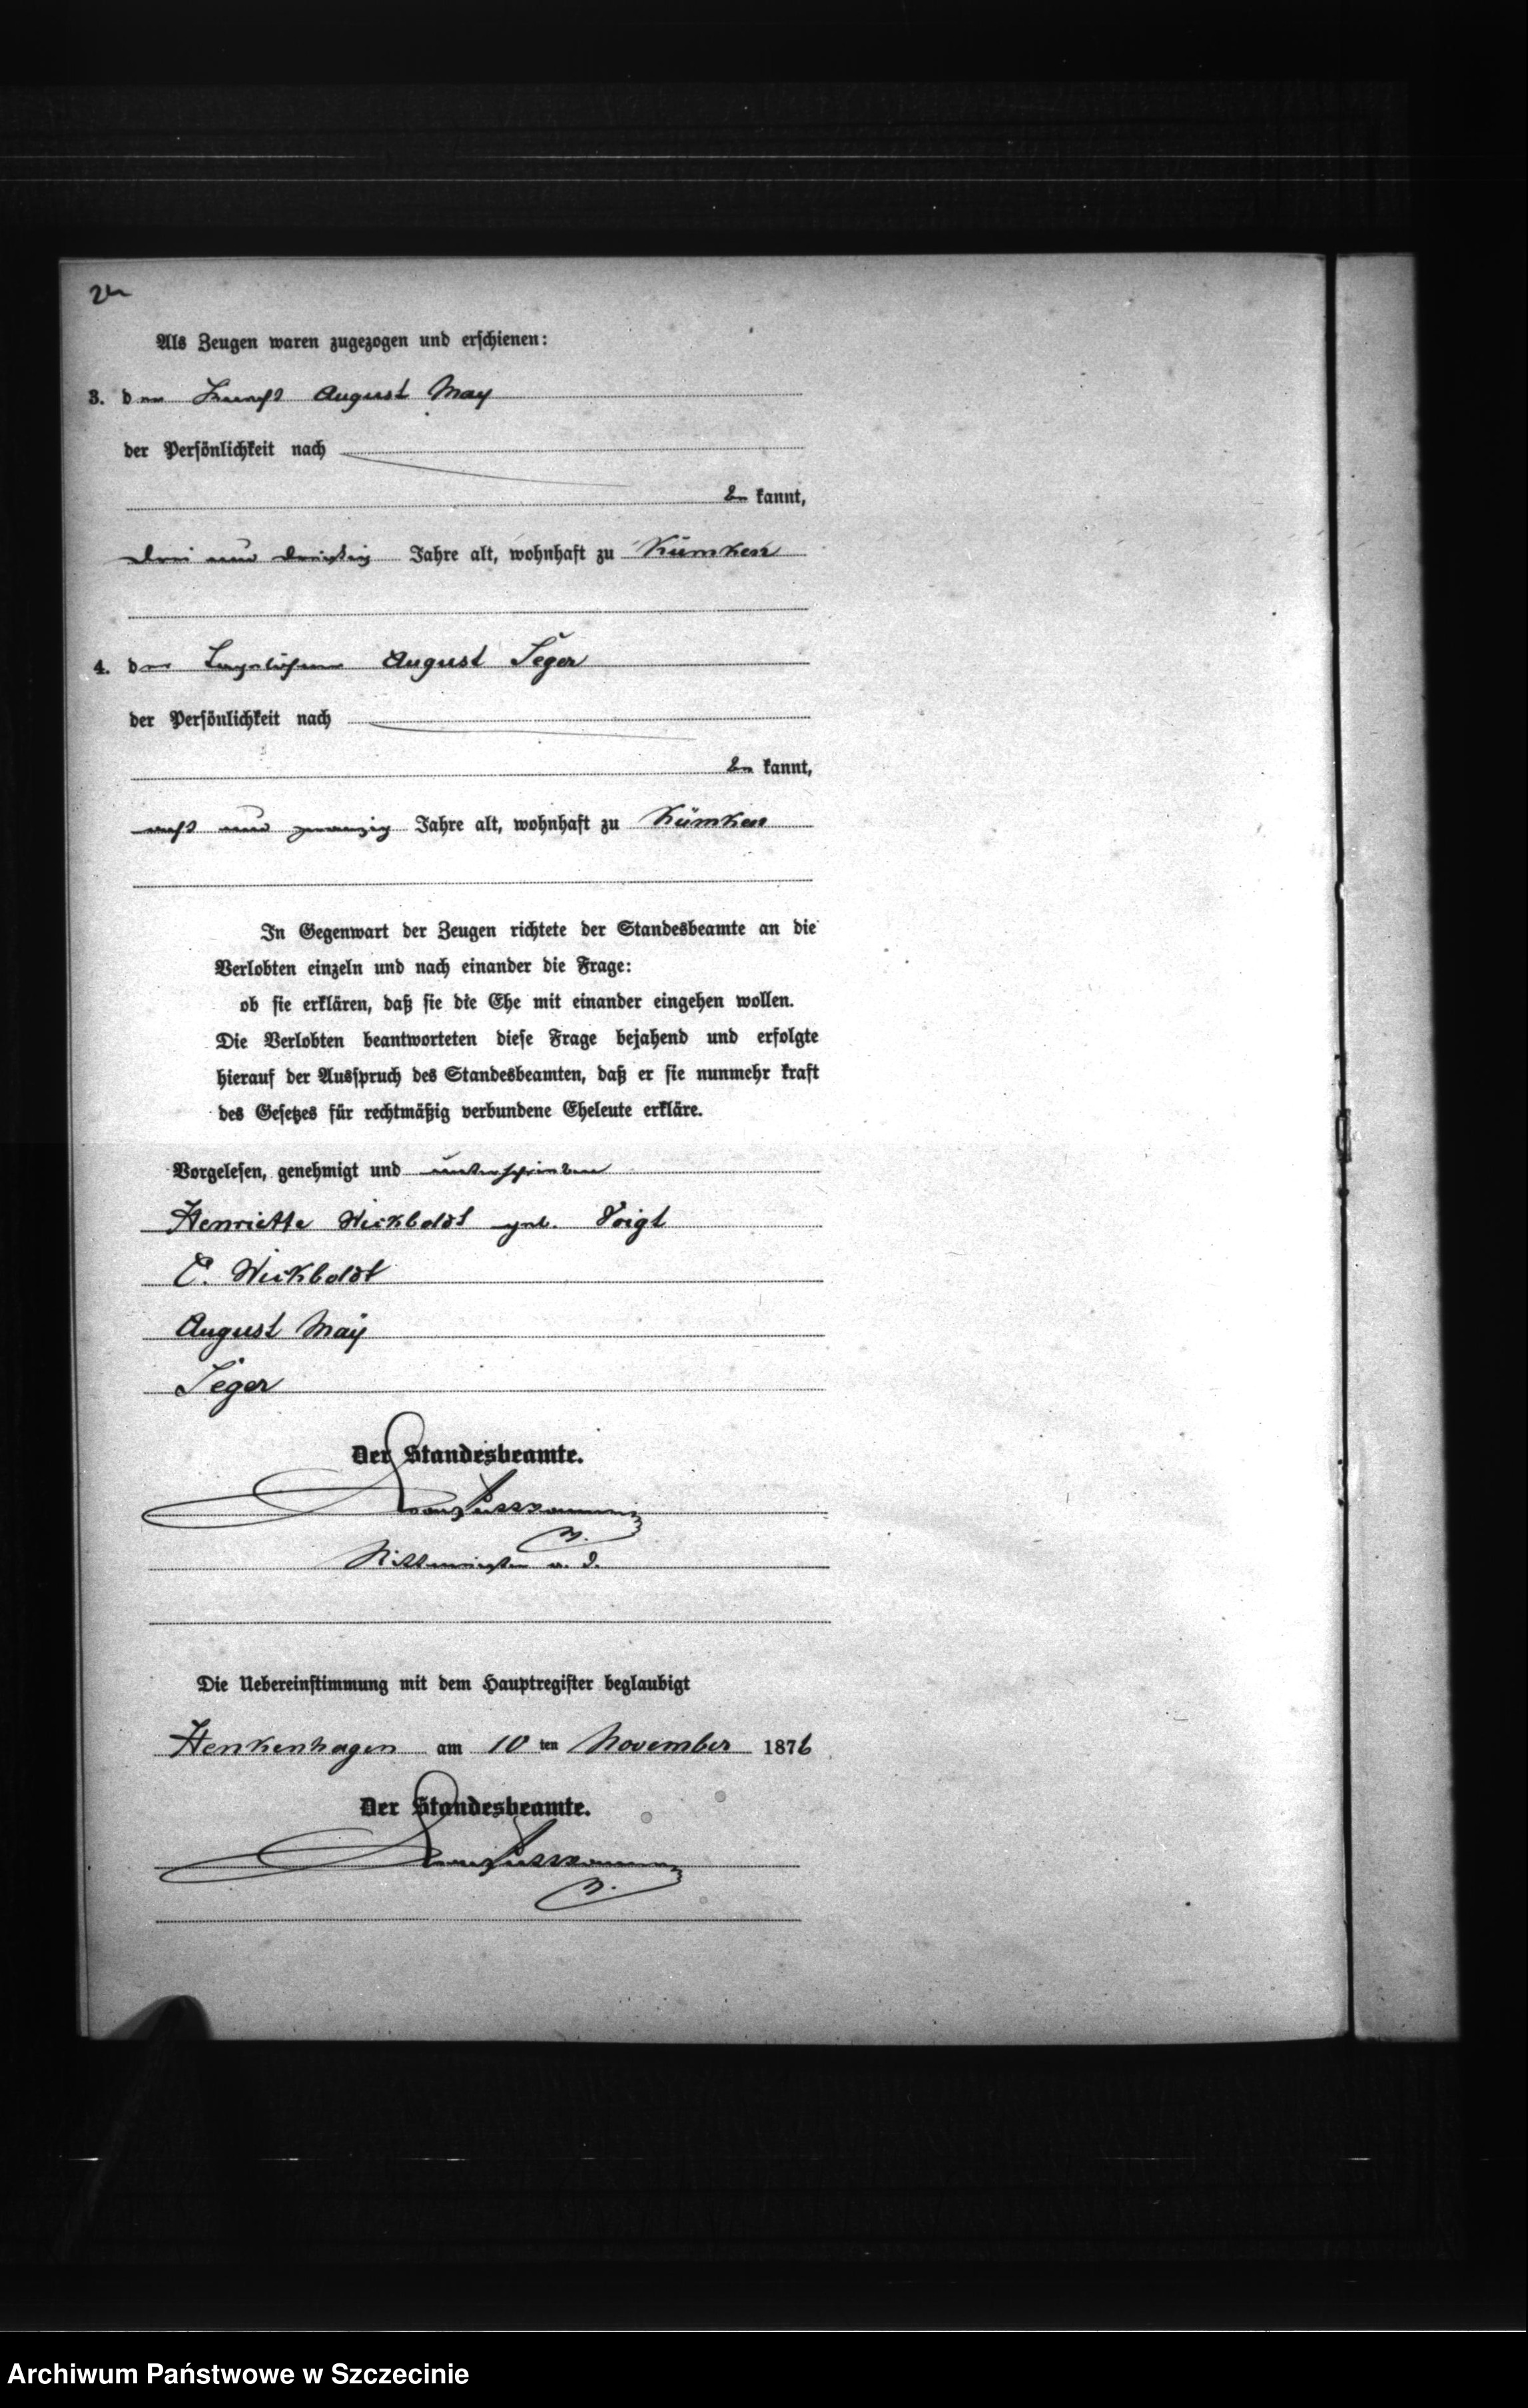 24
Als Zeugen waren zugezogen und erschienen:
3. der Knecht August May
der Persönlichkeit nach
be kannt,
drei und dreißig Jahre alt, wohnhaft zu Kümken
4. der Tagelöhner August Seger
der Persönlichkeit nach
be kannt,
acht und zwanzig Jahre alt, wohnhaft zu Kümken
In Gegenwart der Zeugen richtete der Standesbeamte an die
Verlobten einzeln und nach einander die Frage:
ob sie erklären, daß sie die Ehe mit einander eingehen wollen.
Die Verlobten beantworteten diese Frage bejahend und erfolgte
hierauf der Ausspruch des Standesbeamten, daß er sie nunmehr kraft
des Gesetzes für rechtmäßig verbundene Eheleute erkläre.
Vorgelesen, genehmigt und unterschrieben
Henriette Wickboldt geb. Voigt
C. Wickboldt
August May
Seger
Der Standesbeamte.
Rittmeister a. D.
Die Uebereinstimmung mit dem Hauptregister beglaubigt
Henkenhagen am 10 ten November 1876
Der Standesbeamte.
Archiwum Państwowe w Szczecinie